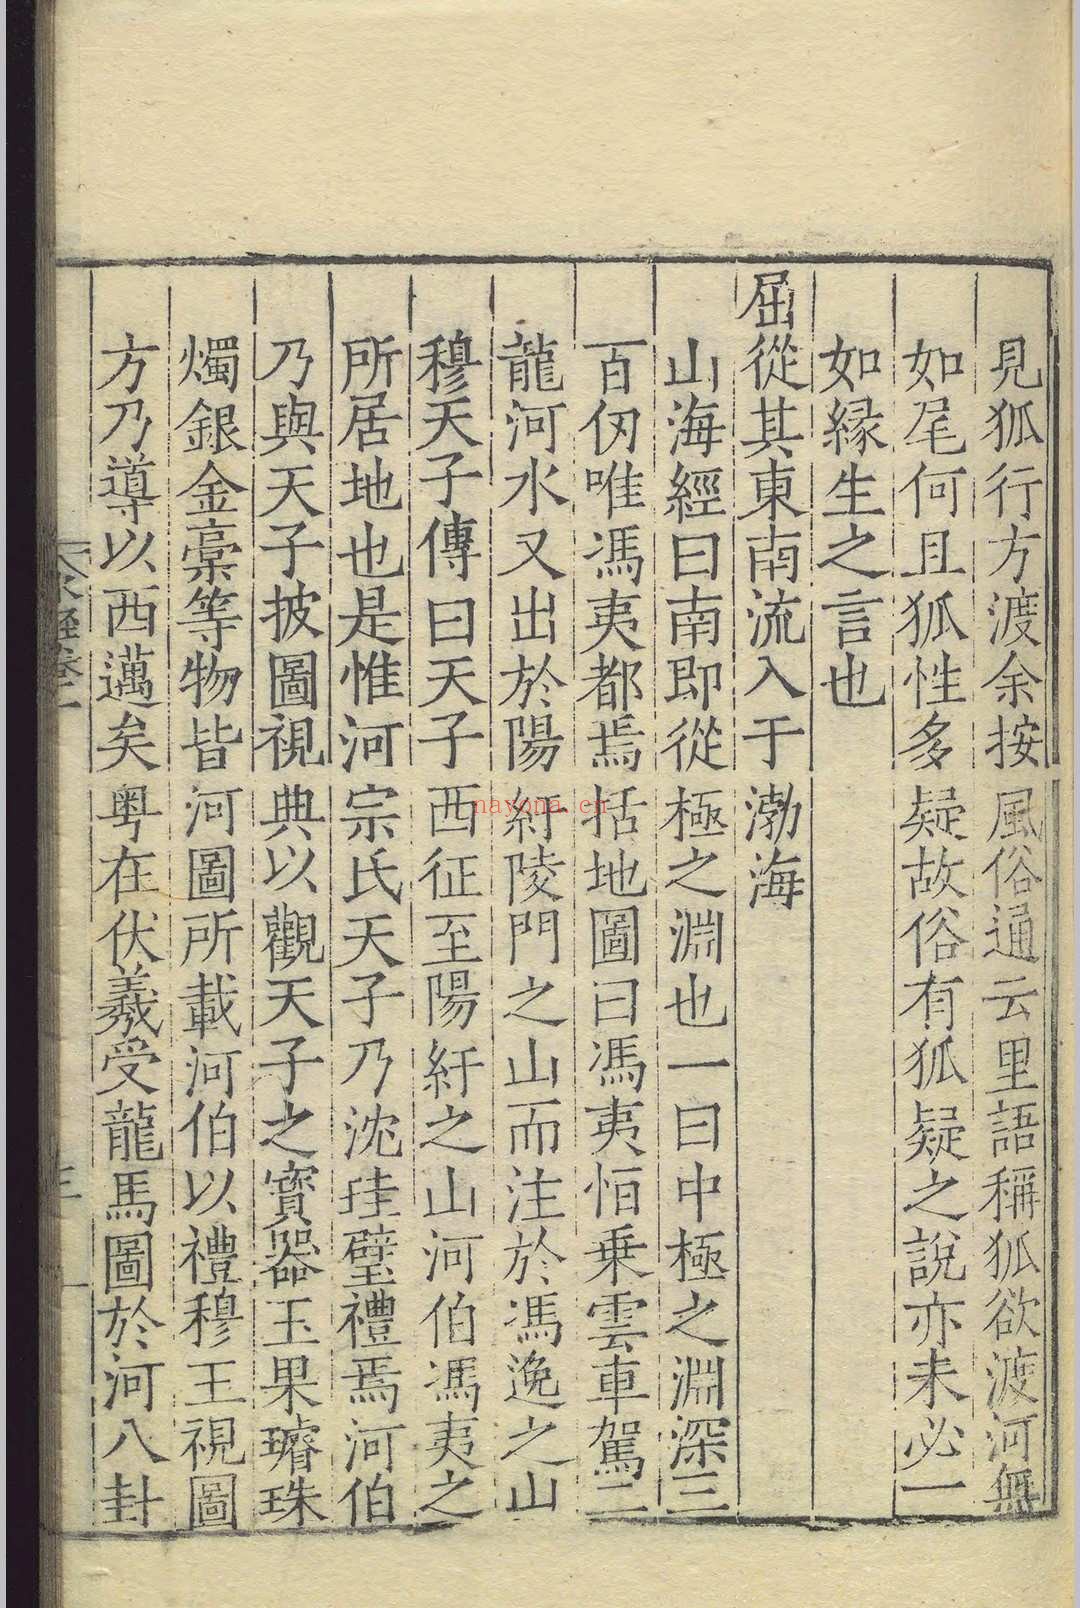 見狐行方渡余按風俗通云里語稱狐欲渡河無
如尾何且狐性多疑故俗有狐疑之說亦未必一
如緣生之言也
屈從其東南流入于渤海
山海經曰南即從極之淵也一曰中極之淵深三
百仞唯馮夷都焉括地圖曰馮夷恒乗雲車駕二
龍河水又出於陽紆陵門之山而注於馮逸之山
穆天子傳曰天子西征至陽紆之山河伯馮夷之
所居地也是惟河宗氏天子乃沈珪璧禮焉河伯
乃與天子披圖視典以觀天子之寶器玉果璿珠
燭銀金橐等物皆河圖所載河伯以禮穆王視圖
方乃導以西邁矣粤在伏羲受龍馬圖於河八卦
水經卷一
三
nayona.cn